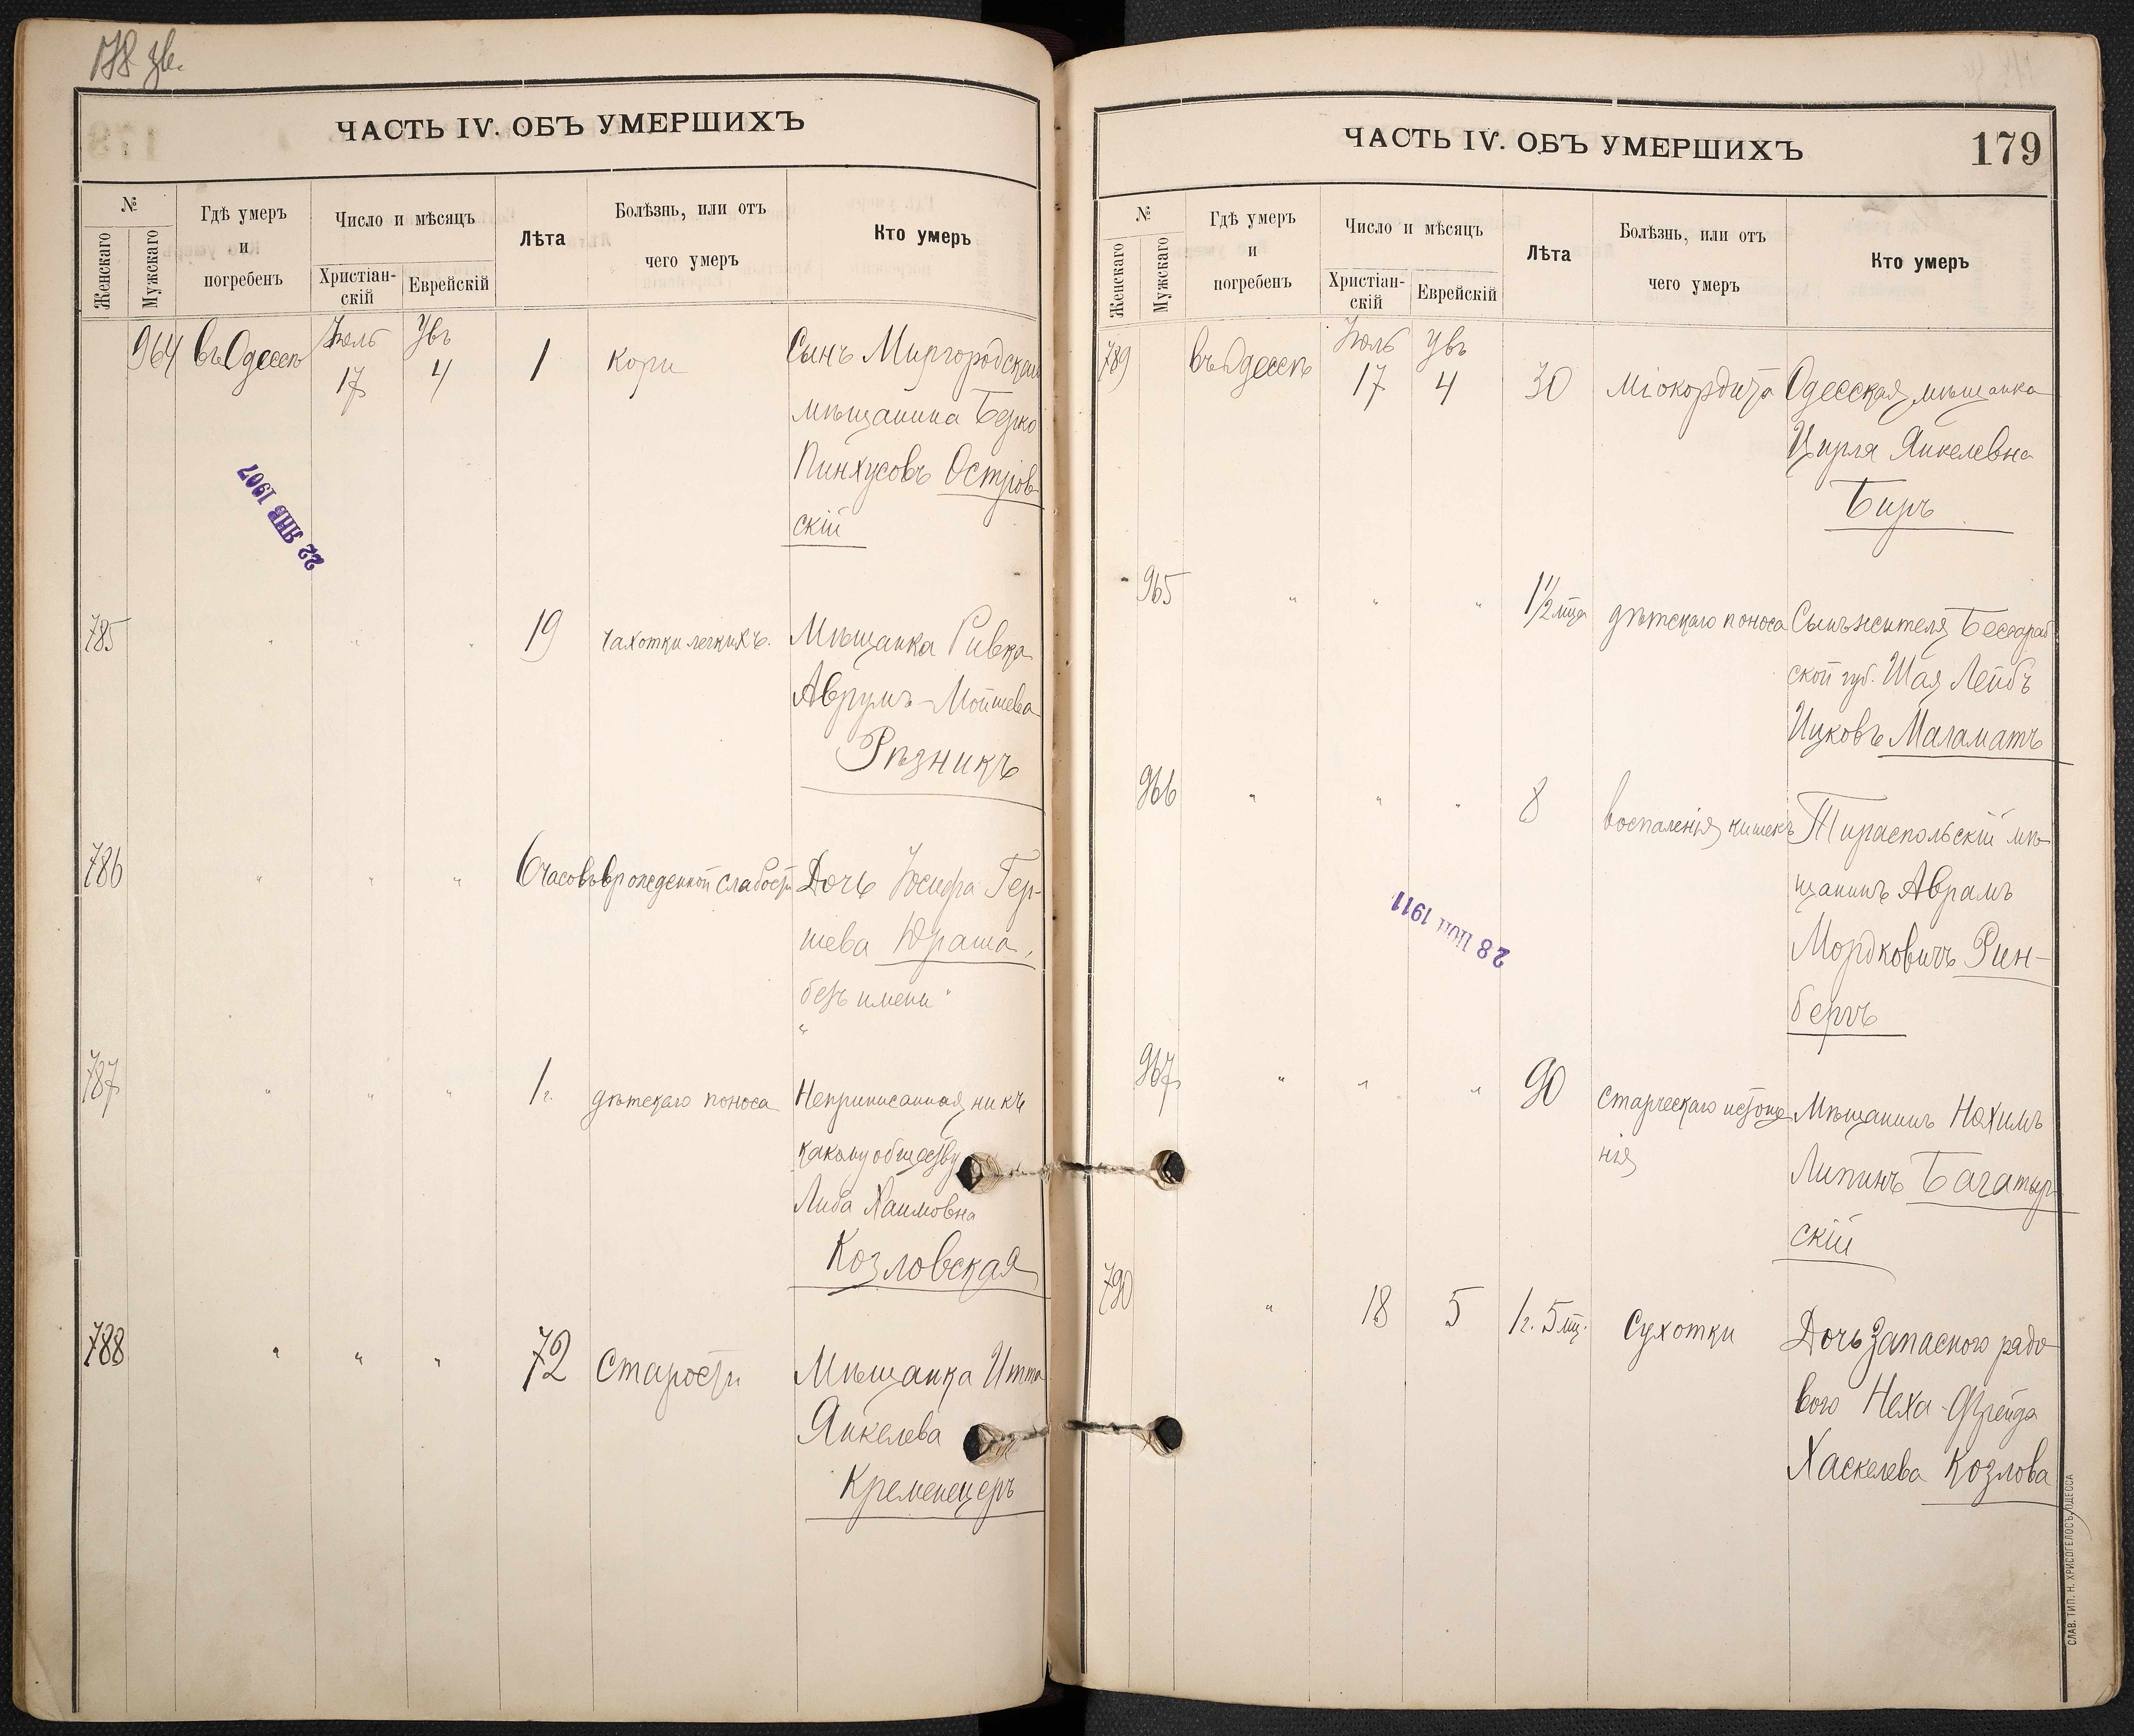 178 зв.
ЧАСТЬ IV. ОБЪ УМЕРШИХЪ
№
Женскаго
Мужскаго
Гдѣ умеръ
и
погребенъ
Число и мѣсяцъ
Христіан-
скій
Еврейскій
Лѣта
Болѣзнь, или отъ
чего умеръ
Кто умеръ
964 въ Одессѣ Іюль 17 Увъ 4 1 кори Сынъ Миргородскаго
мѣщанина Берко
Пинхусовъ Остров-
скій
22 ЯНВ 1907
785 " " " 19 чахотки легкихъ. Мѣщанка Ривка
Аврумъ-Мойшева
Рѣзникъ
786 " " " 6 часовъ врожденной слабости Дочь Іосифа Гер-
шева Юраша,
безъ имени "
"
787 " " " 1 г. дѣтскаго поноса Неприписанная ни къ
какому обществу
Либа Хаимовна
Козловская
788 " " " 72 старости Мѣщанка Итта
Янкелева
Кременецеръ
ЧАСТЬ IV. ОБЪ УМЕРШИХЪ
179
№
Женскаго
Мужскаго
Гдѣ умеръ
и
погребенъ
Число и мѣсяцъ
Христіан-
скій
Еврейскій
Лѣта
Болѣзнь, или отъ
чего умеръ
Кто умеръ
789 въ Одессѣ Іюль 17 Увъ 4 30 міокордита Одесская мѣщанка
Цирля Янкелевна
Биръ
965 " " " 1 1/2 мца дѣтскаго поноса Сынъ жителя Бессараб
ской губ. Шая Лейбъ
Ицковъ Маламатъ
966 " " " 8 воспаленія кишекъ Тираспольскій мѣ-
щанинъ Аврамъ
Мордковичъ Рин-
бергъ
28 ІЮЛ 1911
967 " " " 90 старческаго истоще Мѣщанинъ Нахимъ
нія
Липинъ Багатыр-
скій
790 " 18 5 1 г. 5 мц. Сухотки Дочь запаснаго рядо
вого Неха-Фрейда
Хаскелева Козлова
СЛАВ. ТИП. Н. ХРИСОГЕЛОСЪ, ОДЕССА